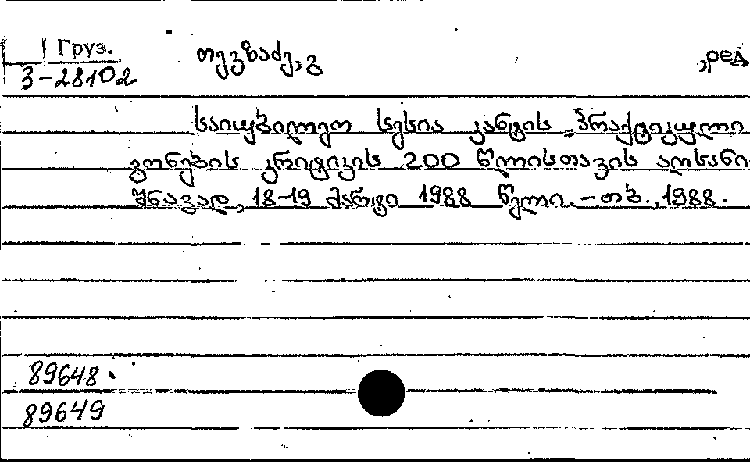 Груз. თევზაძე, გ ,ред
3-28102
საიუბილეო სესია კანტის „პრაქტიკული
გონების კრიტიკის 200 წლისთავის აღსანი
შნავად, 18-19 მარტი 1988 წელი. - თბ., 1988.
89648
89649